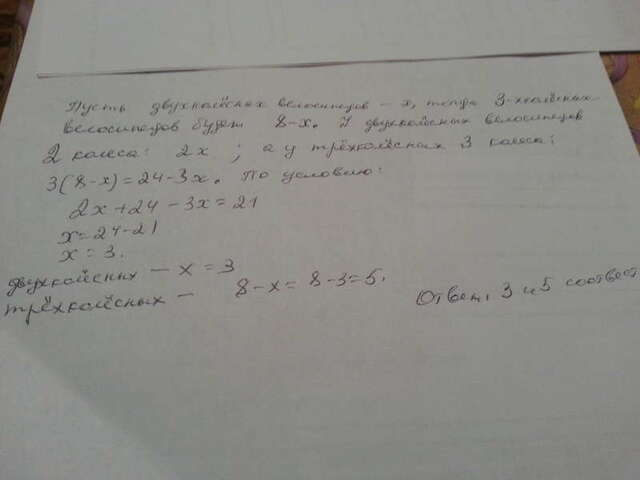 Пусть двухколёсных велосипедов – x, тогда 3-хколёсных
велосипедов будет 8-x. У двухколёсных велосипедов
2 колеса: 2x ; а у трёхколёсных 3 колеса:
3(8-x)=24-3x. По условию:
2x+24-3x=21
x=24-21
x=3.
двухколёсных – x=3
трёхколёсных – 8-x=8-3=5.
Ответ: 3 и 5 соответст